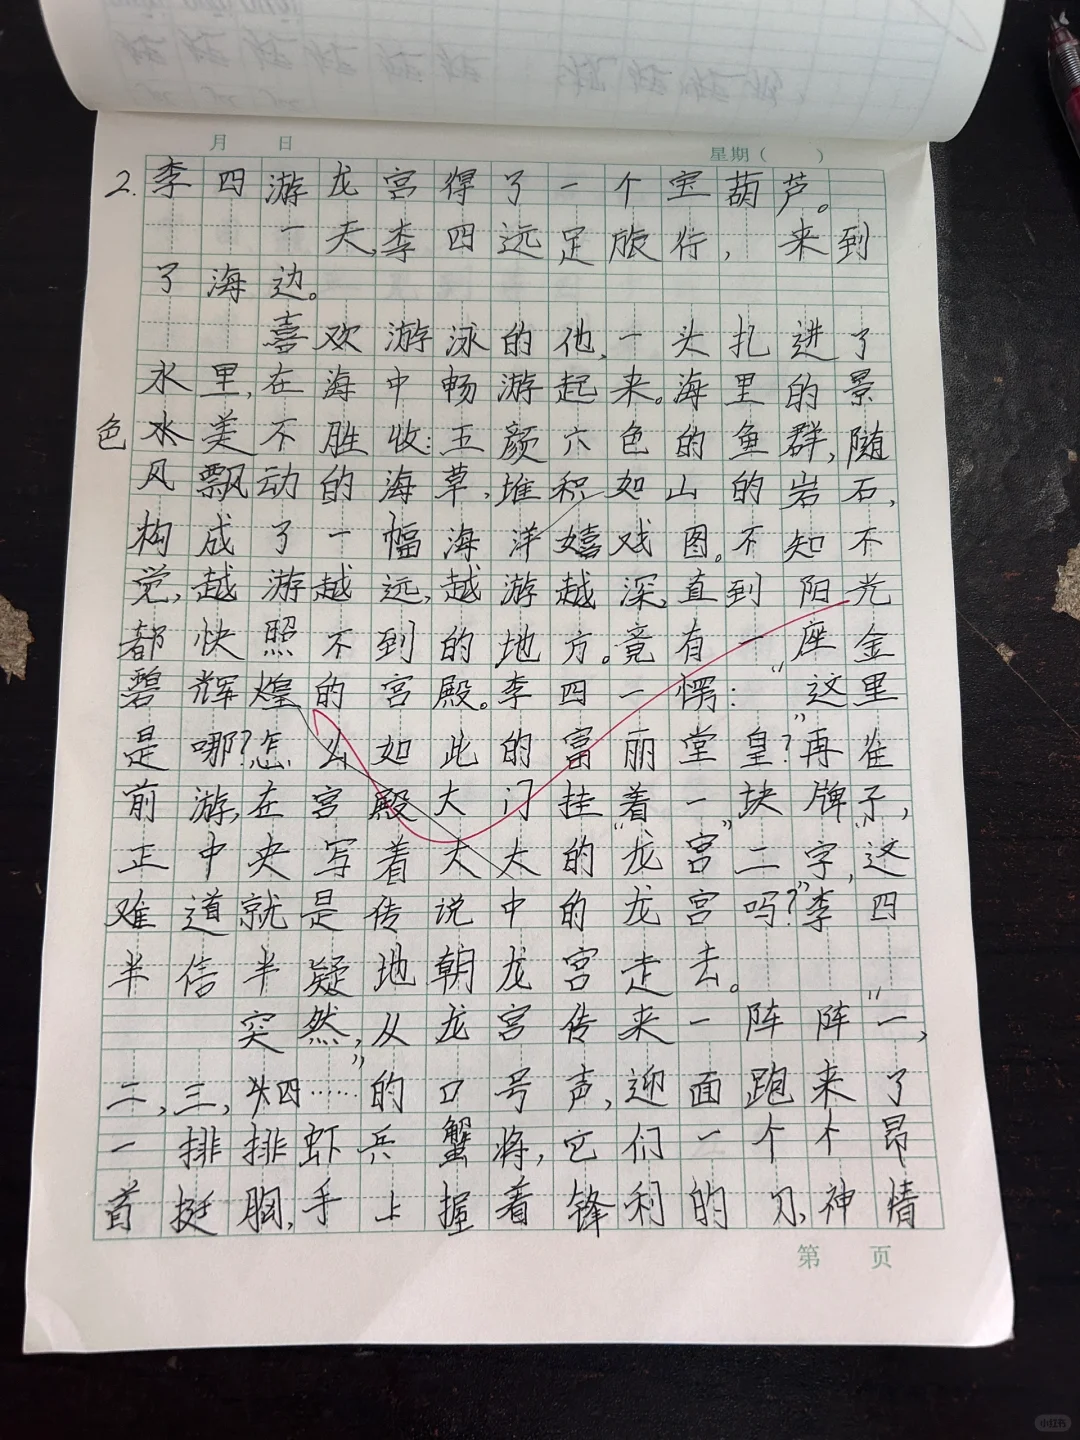 月 日 星期( )
2.李四游龙宫得了一个宝葫芦。
一天,李四远足旅行,来到
了海边。
喜欢游泳的他,一头扎进了
水里,在海中畅游起来。海里的景
色水美不胜收:五颜六色的鱼群,随
风飘动的海草,堆积如山的岩石,
构成了一幅海洋嬉戏图。不知不
觉,越游越远,越游越深,直到阳光
都快照不到的地方。竟有一座金
碧辉煌的宫殿。李四一愣:“这里
是哪?怎么如此的富丽堂皇?”再往
前游,在宫殿大门挂着一块牌子,
正中央写着大大的“龙宫”二字,“这
难道就是传说中的龙宫吗?”李四
半信半疑地朝龙宫走去。
突然,从龙宫传来一阵阵“一,
二,三,四……”的口号声,迎面跑来了
一排排虾兵蟹将,它们一个个昂
首挺胸,手上握着锋利的刀,神情
第 页
小红书